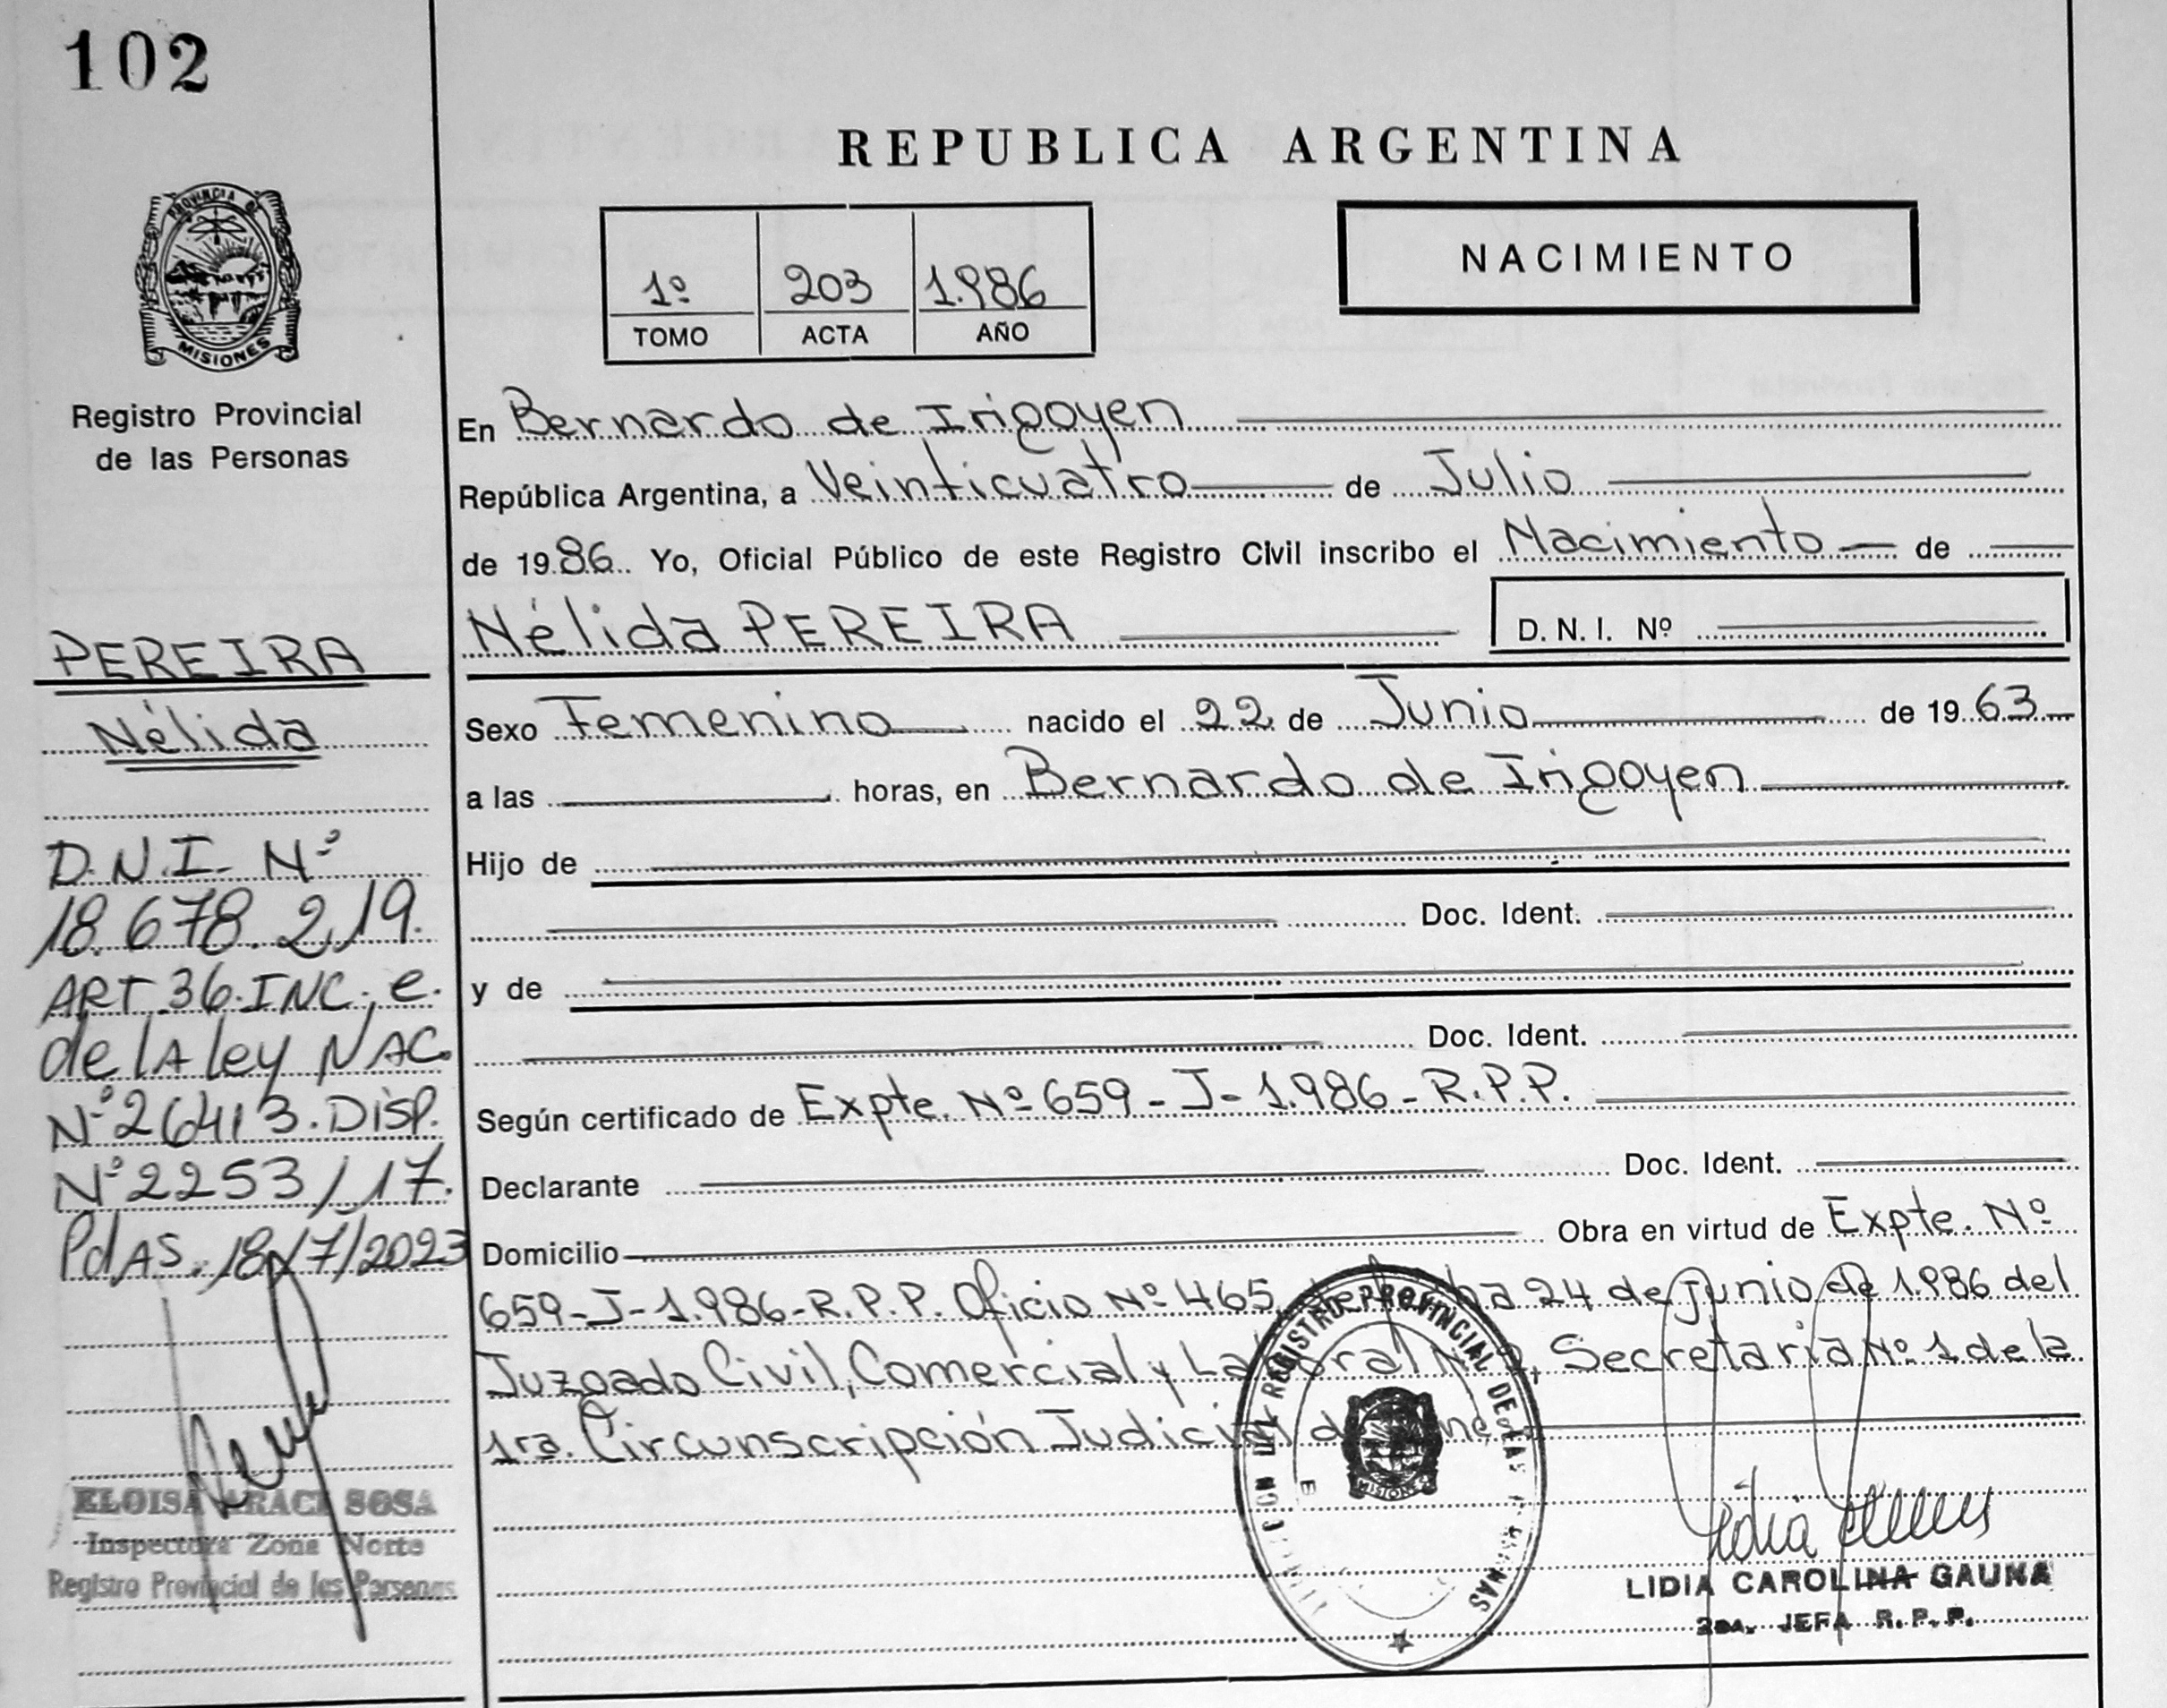 102
REPUBLICA ARGENTINA
PROVINCIA DE
MISIONES
Registro Provincial
de las Personas
1º 203 1.986
TOMO ACTA AÑO
NACIMIENTO
En Bernardo de Irigoyen
República Argentina, a Veinticuatro de Julio
de 1986. Yo, Oficial Público de este Registro Civil inscribo el Nacimiento de
Nélida PEREIRA D. N. I. Nº
Sexo Femenino nacido el 22 de Junio de 1963
a las horas, en Bernardo de Irigoyen
Hijo de
Doc. Ident.
y de
Doc. Ident.
Según certificado de Expte. Nº 659-J-1.986-R.P.P.
Declarante Doc. Ident.
Domicilio Obra en virtud de Expte. Nº
659-J-1.986-R.P.P. Oficio Nº 465, 24 de Junio de 1.986 del
Juzgado Civil, Comercial y Laboral Secretaria Nº 1 de la
1ra. Circunscripción Judicial
PEREIRA
Nélida
D.N.I. Nº
18.678.219.
ART.36.INC.e.
de lA ley NAC.
Nº26413.DISP.
Nº2253/17.
PdAS.18/7/2023
ELOISA ARACI SOSA
Inspectora Zona Norte
Registro Provincial de las Personas
REGISTRO PROVINCIAL DE LAS
MISIONES
LIDIA CAROLINA GAUNA
2DA. JEFA R.P.P.